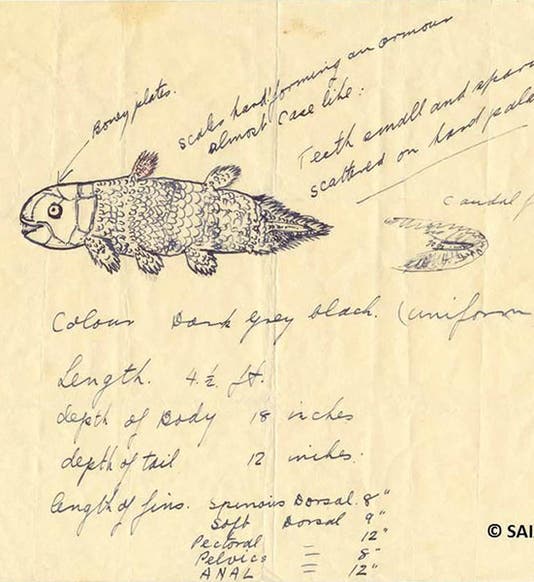 Boney plates.
scales hard forming an armour
almost case like:
Teeth small and
scattered on hard
Caudal
Colour Dark grey black. (uniform
Length. 4.½. ft.
depth of Body 18 inches
depth of tail 12 inches.
length of fins. Spinous Dorsal. 8"
Soft Dorsal 9"
Pectoral 12"
Pelvics = 8"
ANAL = 12"
© SAI